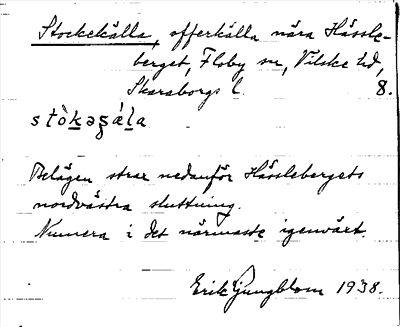 Stockekälla, offerkälla nära Hässle-
berget, Floby sn, Vilske hd,
Skaraborgs l. 8.
stòkaʂála
Belägen strax nedanför Hässlebergets
nordvästra sluttning.
Numera i det närmaste igenväxt.
Erik Ljungblom 1938.